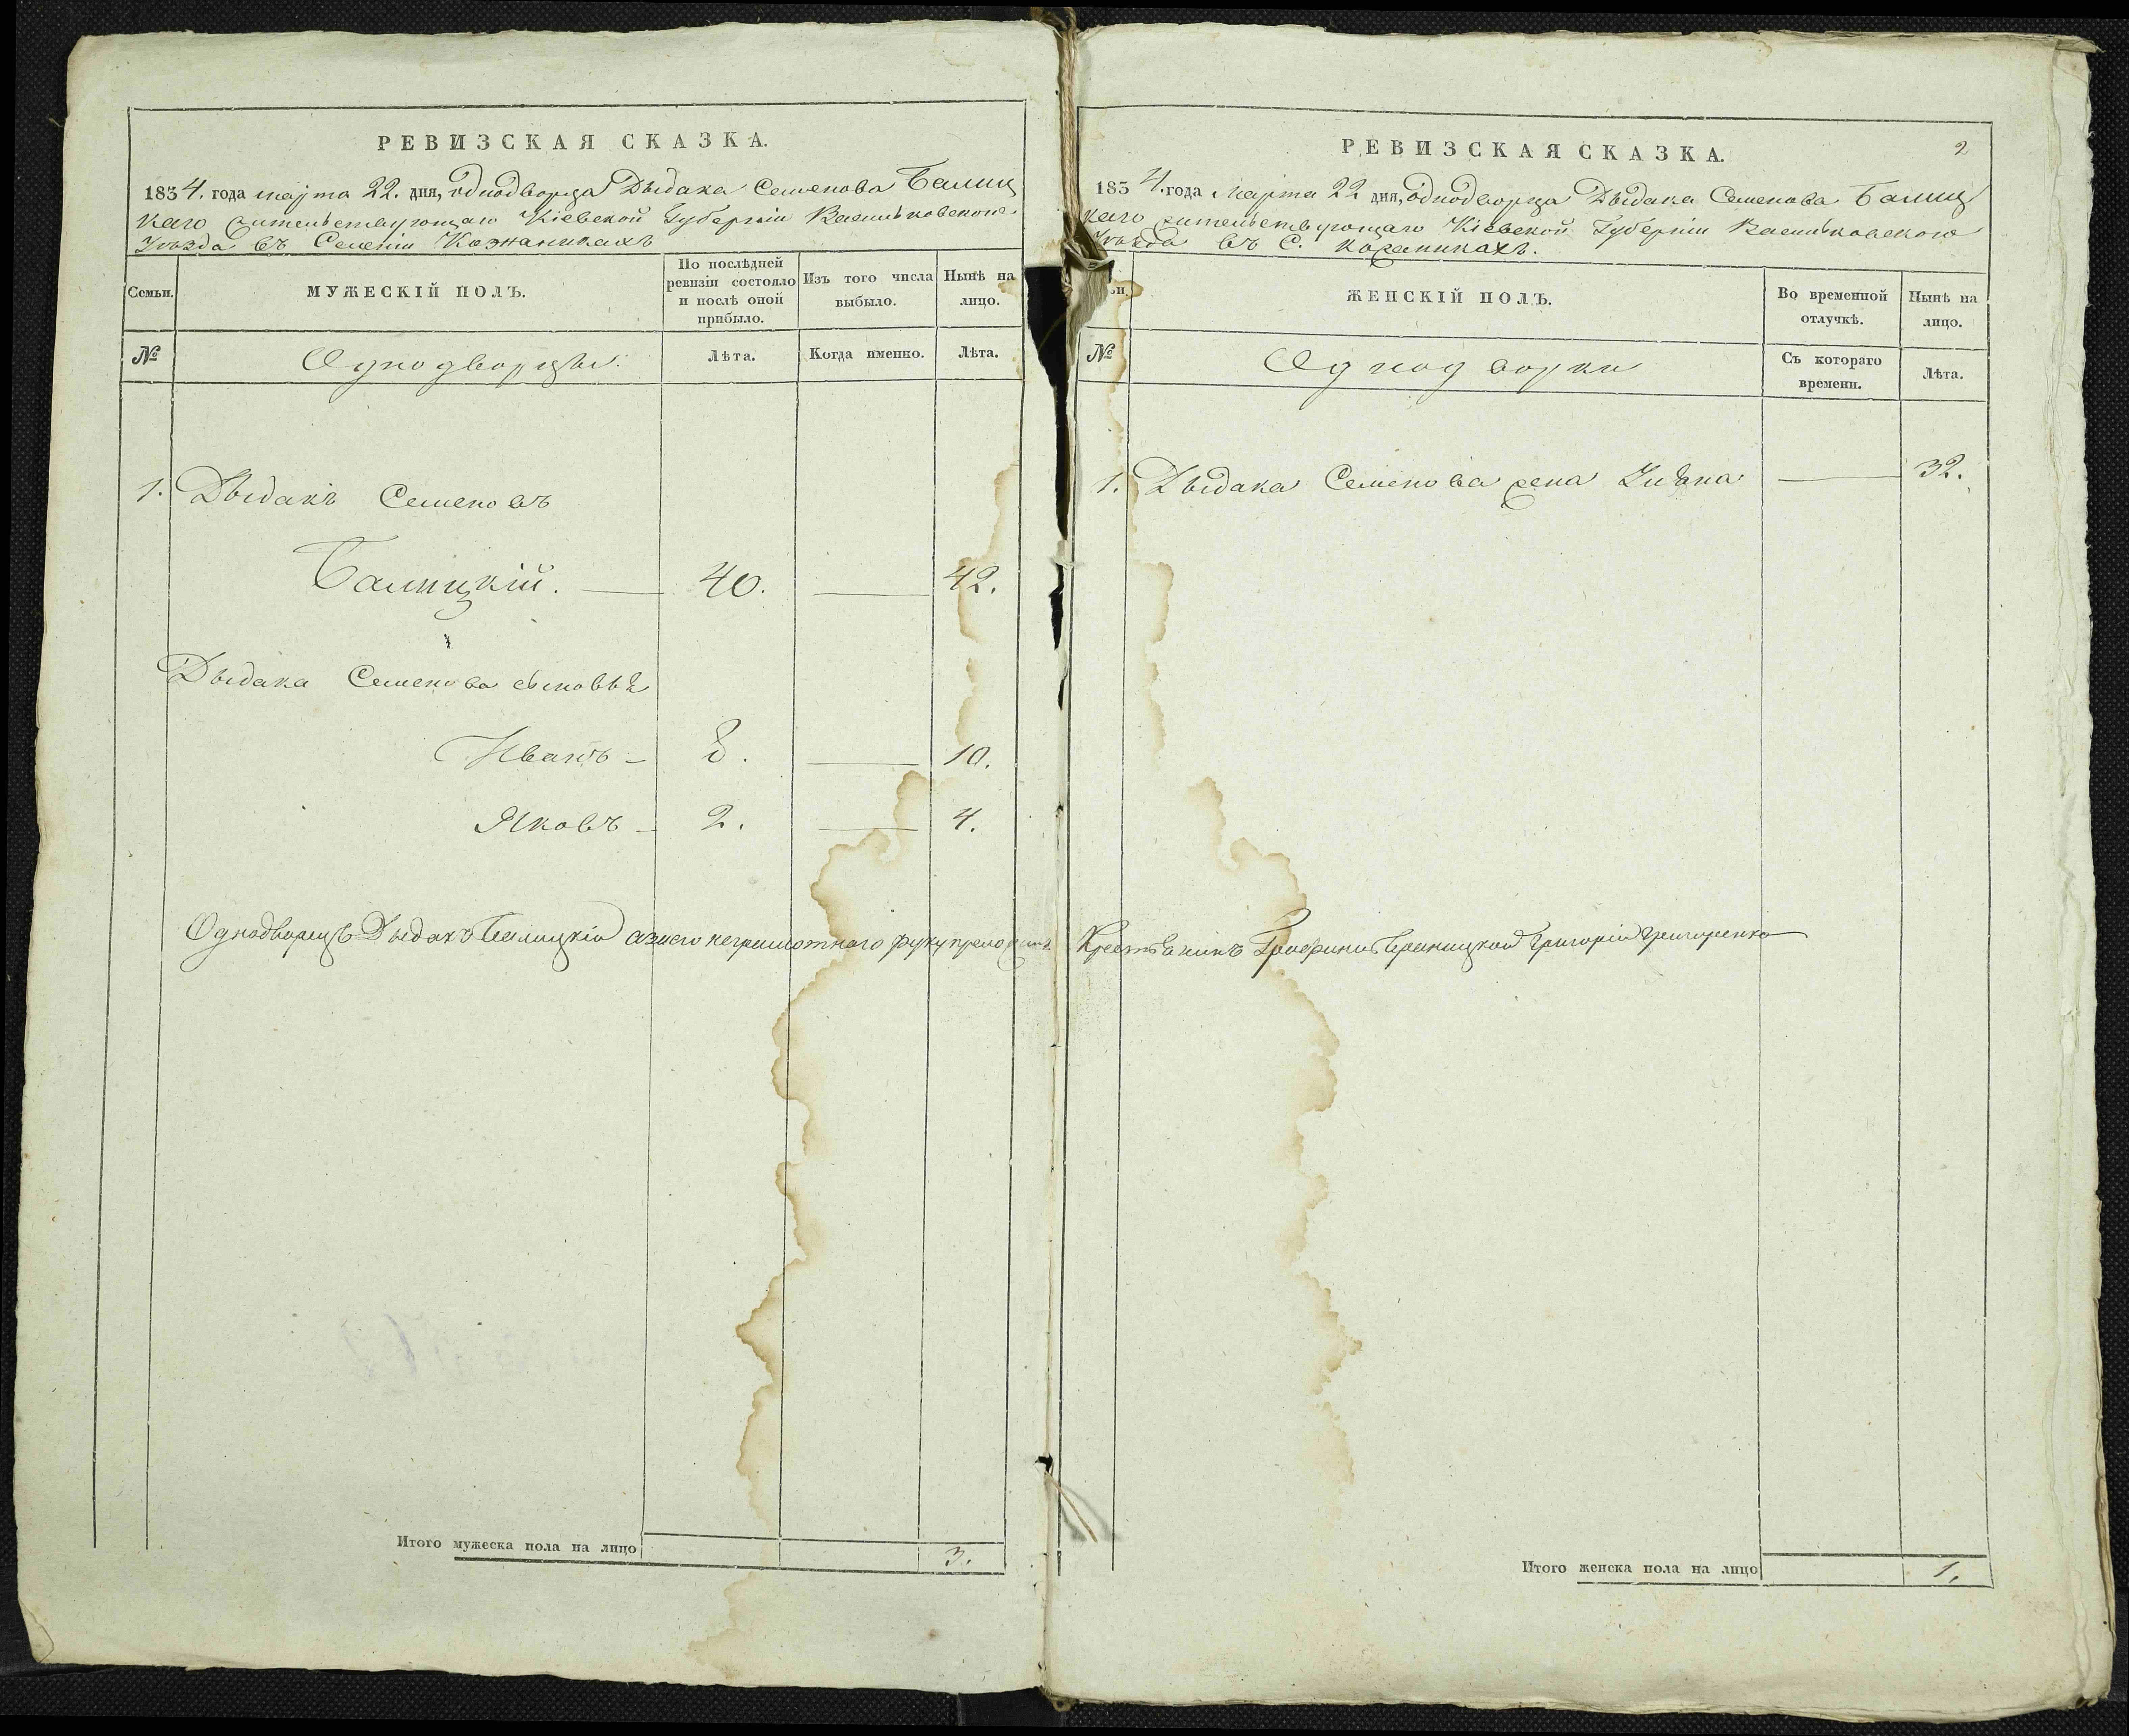 РЕВИЗСКАЯ СКАЗКА.
1834. года марта 22. дня, однодворца Дыдака Семенова Балиц
каго жительствующаго Кіевской Губерніи Васильковского
Уѣзда въ Селеніи
Семьи.
МУЖЕСКІЙ ПОЛЪ.
По послѣдней ревизіи состояло и послѣ оной прибыло.
Изъ того числа выбыло.
Нынѣ на лицо.
№
Однодворцы.
Лѣта.
Когда именно.
Лѣта.
1. Дыдакъ Семеновъ
Балицкій. — 40. — 42.
Дыдака Семенова сыновья
Иванъ — 8. — 10.
Яковъ — 2. — 4.
Однодворецъ Дыдакъ Балицкій а за него неграмотнаго руку приложилъ
Итого мужеска пола на лицо 3.
РЕВИЗСКАЯ СКАЗКА.
2
1834. года Марта 22 дня, однодворца Дыдака Семенова Балиц
каго жительствующаго Кіевской Губерніи Васильковского
Уѣзда въ С.
ЖЕНСКІЙ ПОЛЪ.
Во временной отлучкѣ.
Нынѣ на лицо.
№
Однодворки
Съ котораго времени.
Лѣта.
1. Дыдака Семенова жена — 32.
Крестьянинъ Графини Браницкой Григорій Григоренко
Итого женска пола на лицо 1.